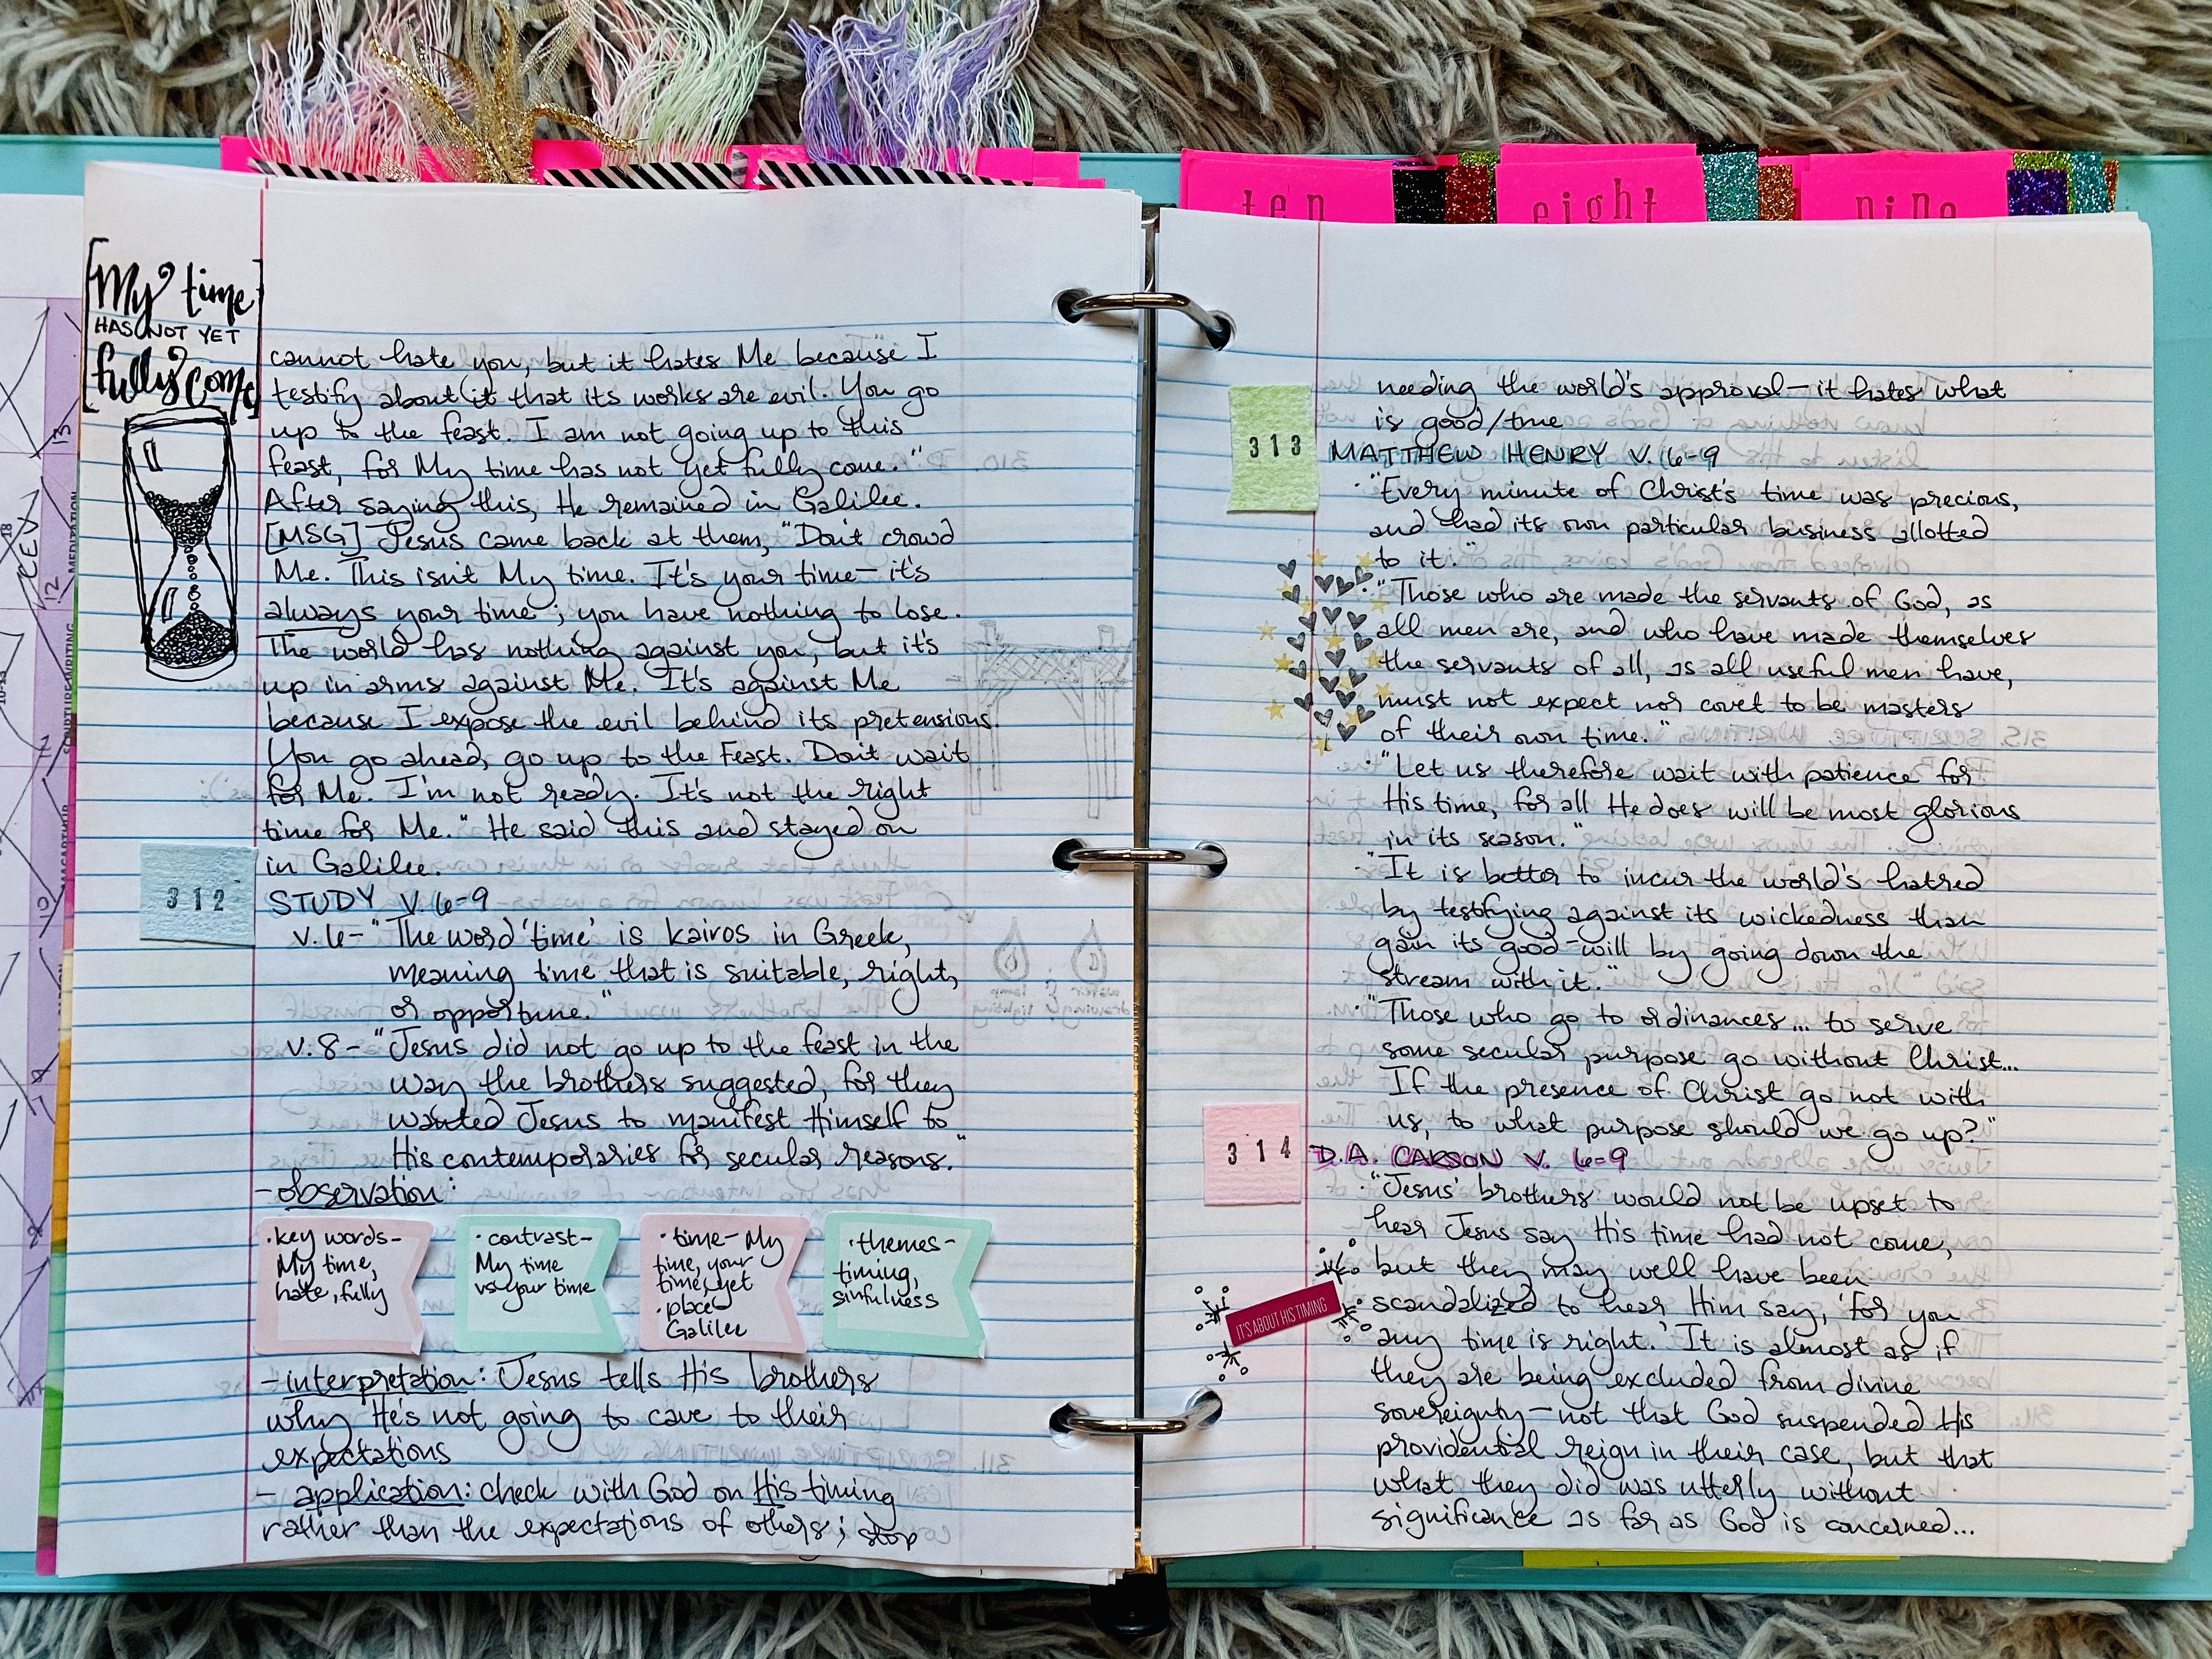 [My time
HAS NOT YET
fully come]
cannot hate you, but it hates Me because I
testify about it that its works are evil. You go
up to the feast. I am not going up to this
feast, for My time has not yet fully come."
After saying this, He remained in Galilee.
[MSG] Jesus came back at them, "Don't crowd
Me. This isn't My time. It's your time—it's
always your time; you have nothing to lose.
The world has nothing against you, but it's
up in arms against Me. It's against Me
because I expose the evil behind its pretensions.
You go ahead, go up to the Feast. Don't wait
for Me. I'm not ready. It's not the right
time for Me." He said this and stayed on
in Galilee.
312
STUDY V. 6-9
v. 6-"The word 'time' is kairos in Greek,
meaning time that is suitable, right,
or opportune."
v. 8-"Jesus did not go up to the feast in the
way the brothers suggested, for they
wanted Jesus to manifest Himself to
His contemporaries for secular reasons."
-observation:
·key words-
My time,
hate, fully
·contrast-
My time
vs your time
·time- My
time, your
time, yet
·place-
Galilee
·themes-
timing,
sinfulness
-interpretation: Jesus tells His brothers
why He's not going to cave to their
expectations
- application: check with God on His timing
rather than the expectations of others; stop
ten
eight
nine
needing the world's approval—it hates what
is good/true
313
MATTHEW HENRY V. 6-9
·"Every minute of Christ's time was precious,
and had its own particular business allotted
to it."
·"Those who are made the servants of God, as
all men are, and who have made themselves
the servants of all, as all useful men have,
must not expect nor covet to be masters
of their own time."
·"Let us therefore wait with patience for
His time, for all He does will be most glorious
in its season."
·"It is better to incur the world's hatred
by testifying against its wickedness than
gain its good-will by going down the
stream with it."
·"Those who go to ordinances... to serve
some secular purpose go without Christ...
If the presence of Christ go not with
us, to what purpose should we go up?"
314
D.A. CARSON V. 6-9
·"Jesus' brothers would not be upset to
hear Jesus say His time had not come,
but they may well have been
scandalized to hear Him say, 'for you
any time is right.' It is almost as if
they are being excluded from divine
sovereignty—not that God suspended His
providential reign in their case, but that
what they did was utterly without
significance as far as God is concerned...
IT'S ABOUT HIS TIMING
13
CEV
12
MEDITATION
11
SCRIPTURE WRITING
10
MACARTHUR
9
8